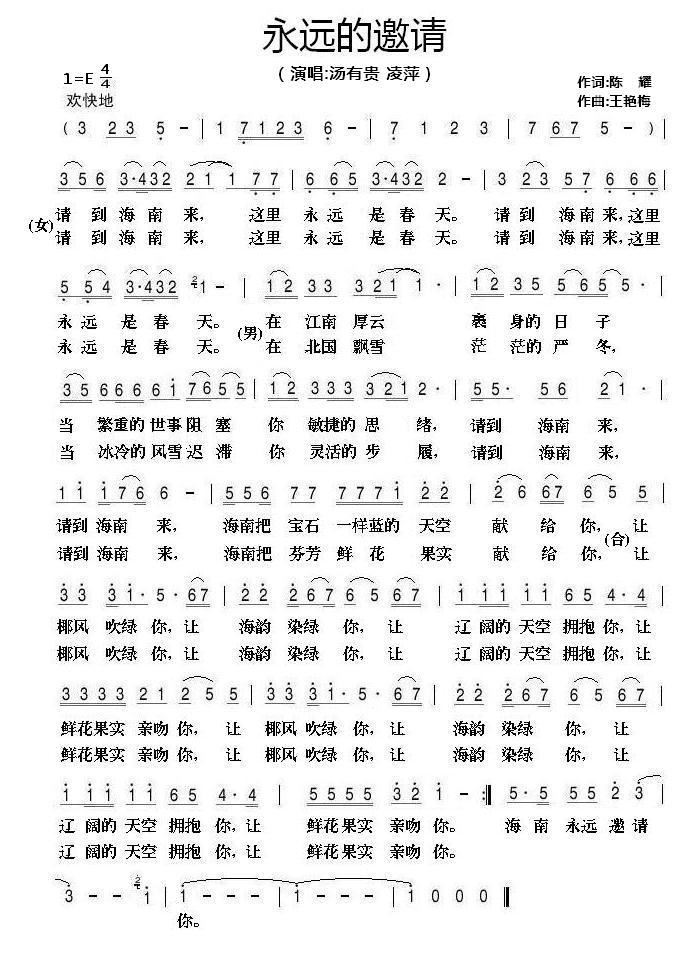 永远的邀请
（演唱:汤有贵 凌萍）
1=E 4/4
作词:陈 耀
欢快地
作曲:王艳梅
( 3 23 5 - | 1 7123 6 - | 7 1 2 3 | 7 67 5 - ) |
356 3·432 2 1 1 7 7 | 6 6 5 3·432 2 - | 3 23 5 7 6 6 6 |
(女) 请 到 海 南 来, 这里 永 远 是 春 天。 请 到 海 南 来, 这里
请 到 海 南 来, 这里 永 远 是 春 天。 请 到 海 南 来, 这里
5 5 4 3·432 2 1 - | 12 33 3 2 1 1 · | 12 35 565 5 · |
永 远 是 春 天。 (男) 在 江南 厚云 裹 身的 日 子
永 远 是 春 天。 在 北国 飘雪 茫 茫的 严 冬,
35 666 61 7655 | 12 333 3212 · | 55· 56 21 · |
当 繁重的 世事 阻 塞 你 敏捷的 思 绪, 请到 海南 来,
当 冰冷的 风雪 迟 滞 你 灵活的 步 履, 请到 海南 来,
11 176 6 - | 556 77 7771 22 | 2 6 67 6 5 5 |
请到 海南 来, 海南把 宝石 一样蓝的 天空 献 给 你, 让
请到 海南 来, 海南把 芬芳 鲜 花 果实 献 给 你, (合) 让
33 31· 5· 67 | 22 267 6 5 67 | 1 11 11 65 4· 4 |
椰风 吹绿 你, 让 海韵 染绿 你, 让 辽 阔的 天空 拥抱 你, 让
椰风 吹绿 你, 让 海韵 染绿 你, 让 辽 阔的 天空 拥抱 你, 让
3333 21 2 5 5 | 33 31· 5· 67 | 22 267 6 67 |
鲜花果实 亲吻 你, 让 椰风 吹绿 你, 让 海韵 染绿 你, 让
鲜花果实 亲吻 你, 让 椰风 吹绿 你, 让 海韵 染绿 你, 让
1 11 11 65 4· 4 | 5555 32 1 - :‖ 5· 5 55 2 3 |
辽 阔的 天空 拥抱 你, 让 鲜花果实 亲吻 你。 海 南 永远 邀 请
辽 阔的 天空 拥抱 你, 让 鲜花果实 亲吻 你。
3 - - 2 1 | 1 - - - | 1 - - - | 1 0 0 0 ‖
你。